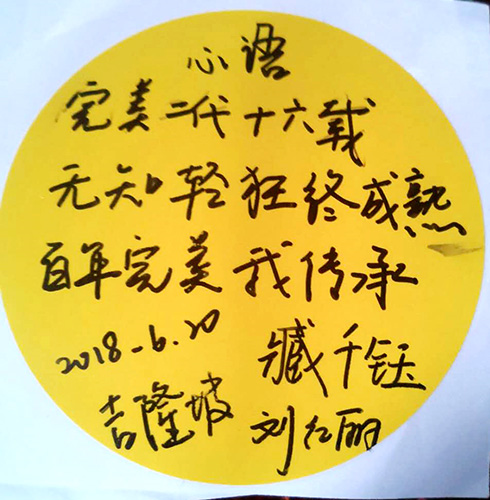 心语
完美二代十六载
无知轻狂终成熟
百年完美我传承
2018-6.20
臧千钰
吉隆坡
刘红丽